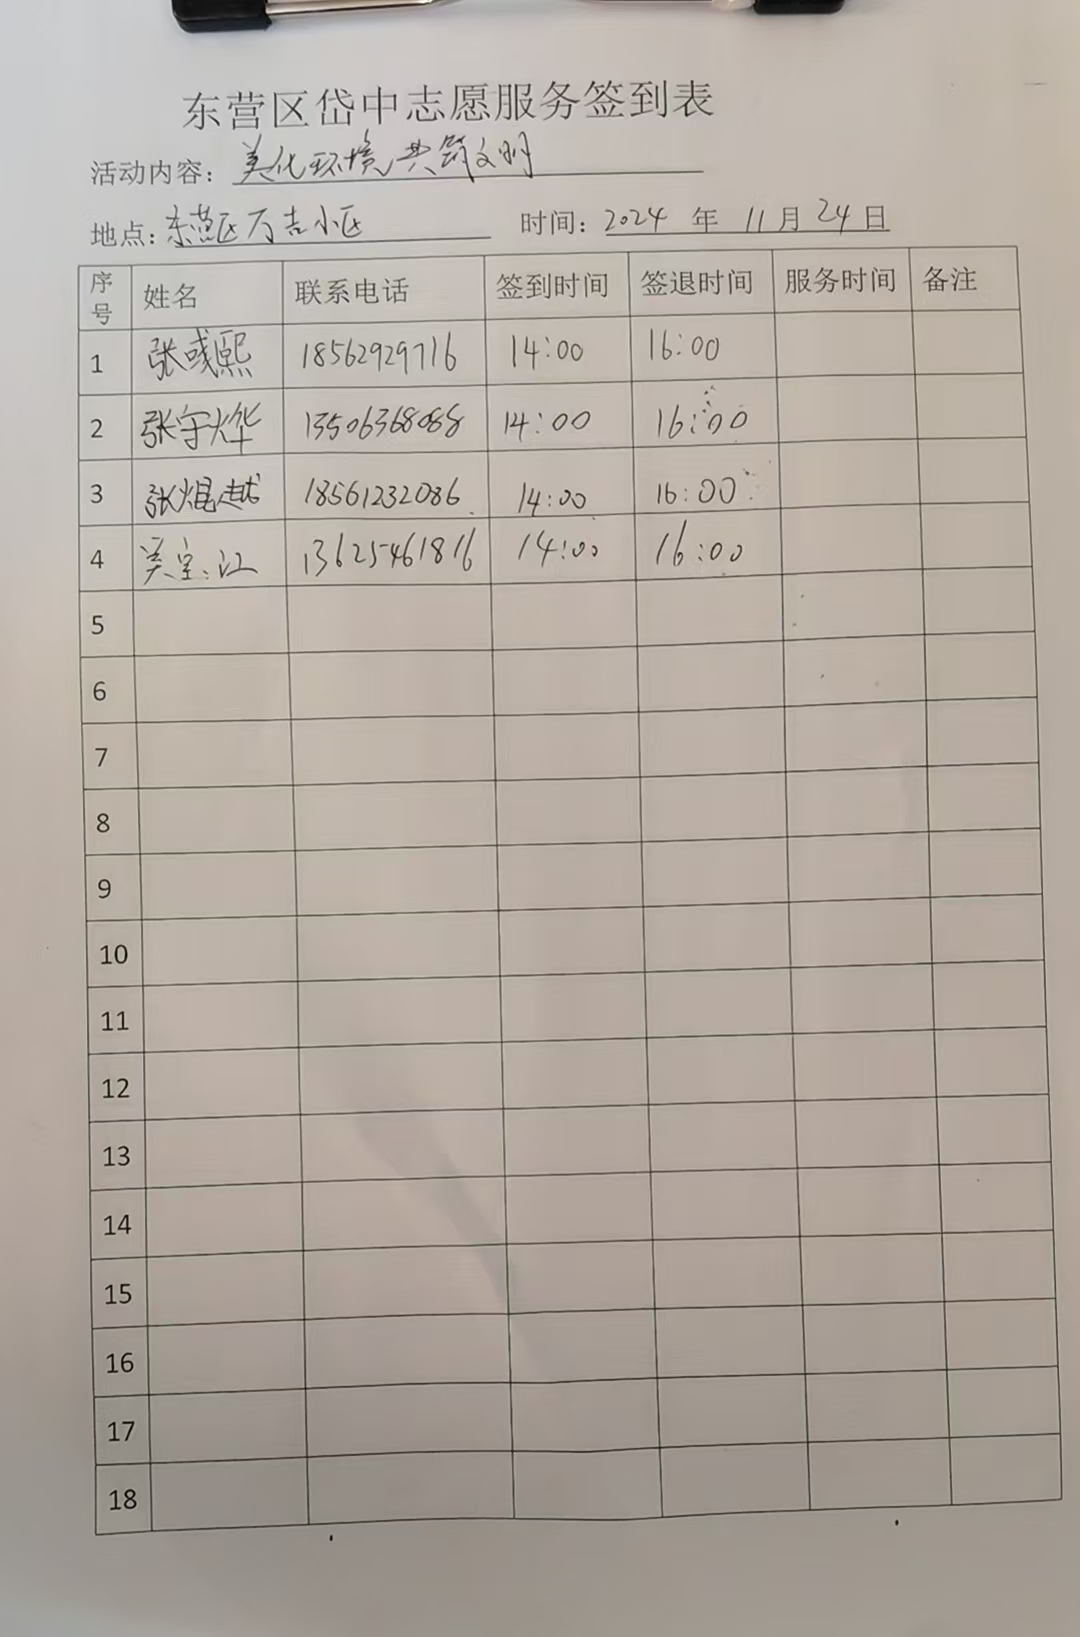 东营区岱中志愿服务签到表
活动内容：美化环境 共筑文明
地点：东营区万吉小区 时间：2024 年 11 月 24 日
序号 姓名 联系电话 签到时间 签退时间 服务时间 备注
1 张彧熙 18562929716 14:00 16:00
2 张宇烨 13506368088 14:00 16:00
3 张焜越 18561232086 14:00 16:00
4 吴宝江 13625461816 14:00 16:00
5
6
7
8
9
10
11
12
13
14
15
16
17
18